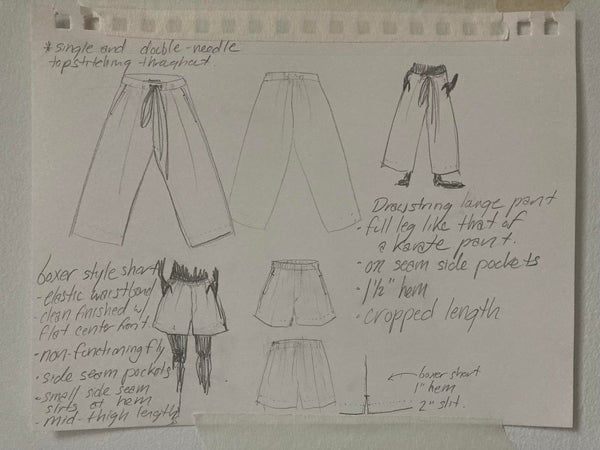 * single and double-needle
topstitching throughout.
Drawstring lange pant
- full leg like that of
a karate pant.
- on seam side pockets
- 1 1/2" hem
- cropped length
boxer style short
- elastic waistband
- clean finished w/
flat center front
- non-functioning fly
- side seam pockets
- small side seam
slits at hem
- mid-thigh length
boxer short
1" hem
2" slit.